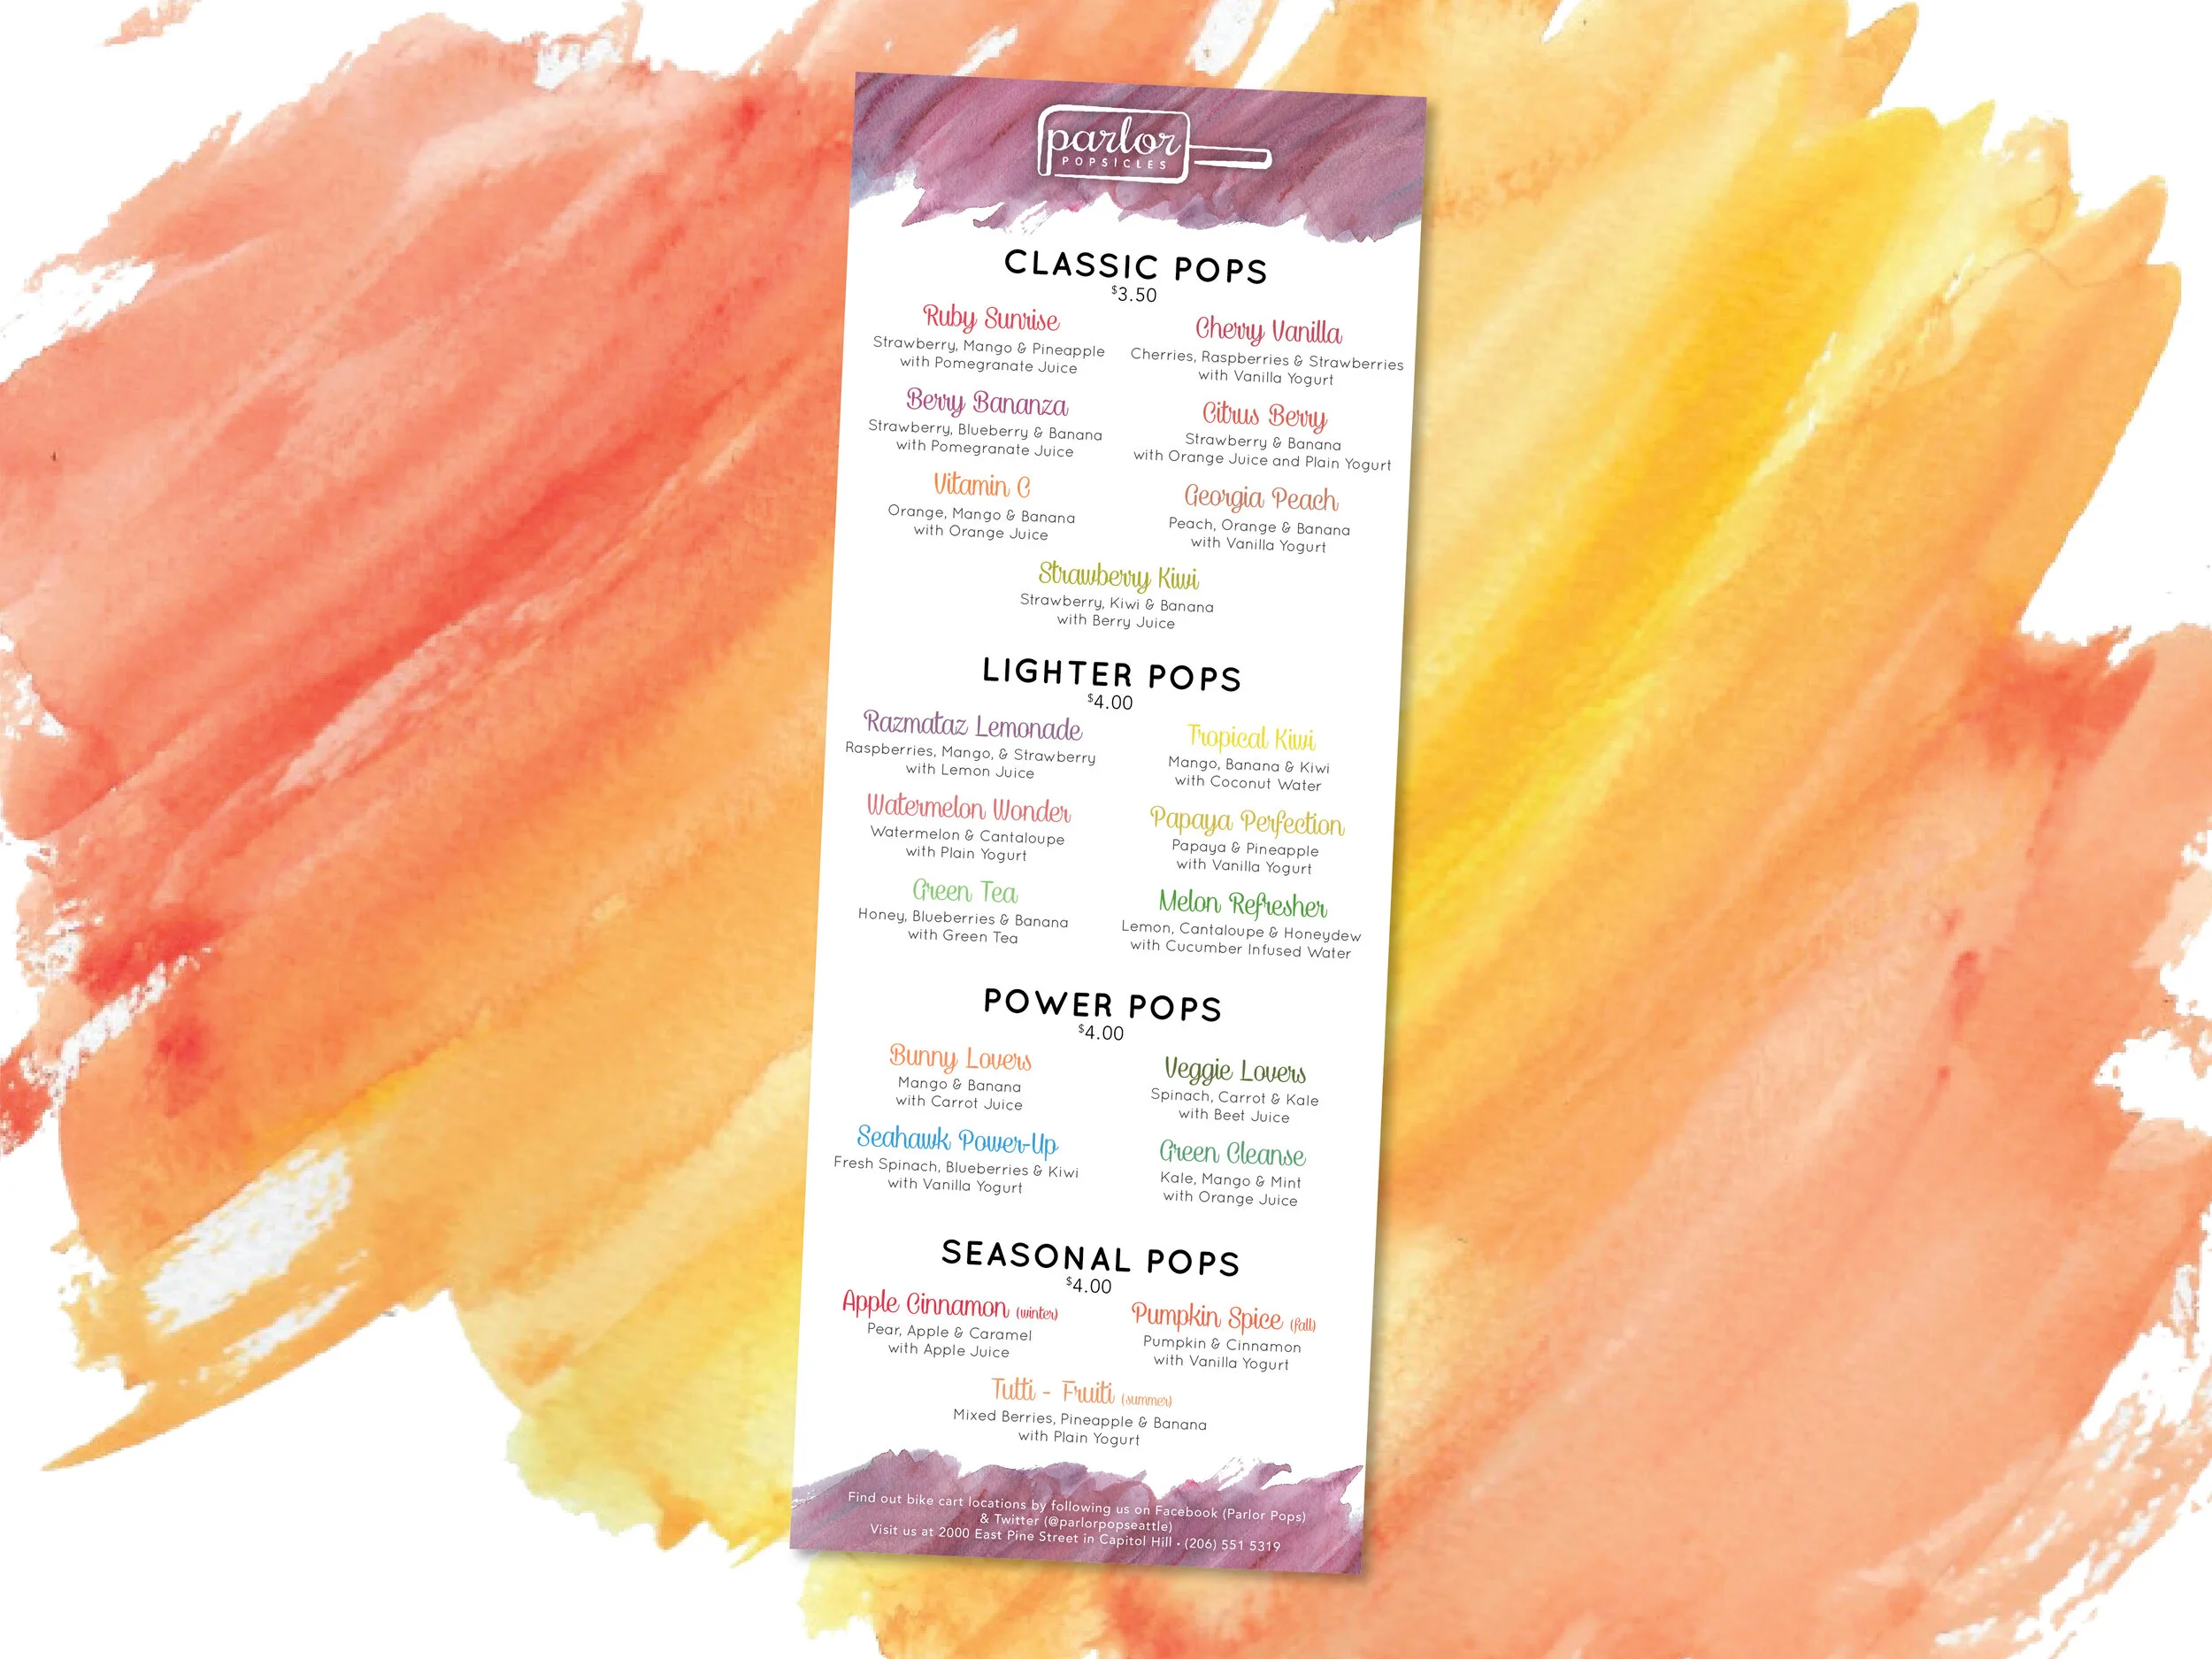 parlor
POPSICLES
CLASSIC POPS
$3.50
Ruby Sunrise
Strawberry, Mango & Pineapple
with Pomegranate Juice
Cherry Vanilla
Cherries, Raspberries & Strawberries
with Vanilla Yogurt
Berry Bananza
Strawberry, Blueberry & Banana
with Pomegranate Juice
Citrus Berry
Strawberry & Banana
with Orange Juice and Plain Yogurt
Vitamin C
Orange, Mango & Banana
with Orange Juice
Georgia Peach
Peach, Orange & Banana
with Vanilla Yogurt
Strawberry Kiwi
Strawberry, Kiwi & Banana
with Berry Juice
LIGHTER POPS
$4.00
Razmataz Lemonade
Raspberries, Mango, & Strawberry
with Lemon Juice
Tropical Kiwi
Mango, Banana & Kiwi
with Coconut Water
Watermelon Wonder
Watermelon & Cantaloupe
with Plain Yogurt
Papaya Perfection
Papaya & Pineapple
with Vanilla Yogurt
Green Tea
Honey, Blueberries & Banana
with Green Tea
Melon Refresher
Lemon, Cantaloupe & Honeydew
with Cucumber Infused Water
POWER POPS
$4.00
Bunny Lovers
Mango & Banana
with Carrot Juice
Veggie Lovers
Spinach, Carrot & Kale
with Beet Juice
Seahawk Power-Up
Fresh Spinach, Blueberries & Kiwi
with Vanilla Yogurt
Green Cleanse
Kale, Mango & Mint
with Orange Juice
SEASONAL POPS
$4.00
Apple Cinnamon (winter)
Pear, Apple & Caramel
with Apple Juice
Pumpkin Spice (fall)
Pumpkin & Cinnamon
with Vanilla Yogurt
Tutti - Fruiti (summer)
Mixed Berries, Pineapple & Banana
with Plain Yogurt
Find out bike cart locations by following us on Facebook (Parlor Pops)
& Twitter (@parlorpopseattle)
Visit us at 2000 East Pine Street in Capitol Hill • (206) 551 5319